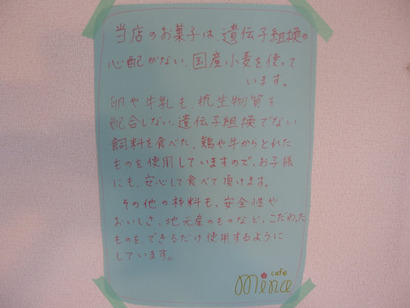 当店のお菓子は、遺伝子組換の
心配がない、国産小麦を使って
います。
卵や牛乳も、抗生物質を
配合しない遺伝子組換でない
飼料を食べた、鶏や牛からとれた
ものを使用していますので、お子様
にも、安心して食べて頂けます。
その他の材料も、安全性や
おいしさ、地元産のものなど、こだわった
ものを、できるだけ使用するように
しています。
cafe
mina